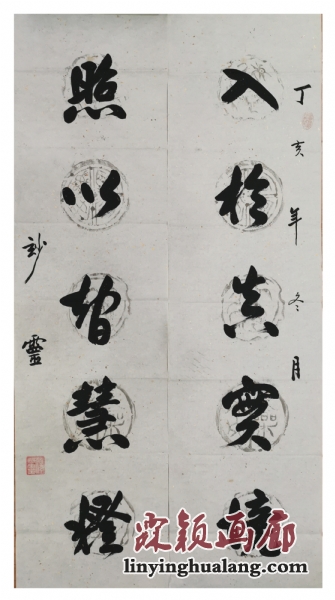 丁亥年冬月
入於真實境
照以智慧燈
玅靈
霖颖画廊
linyinghualang.com